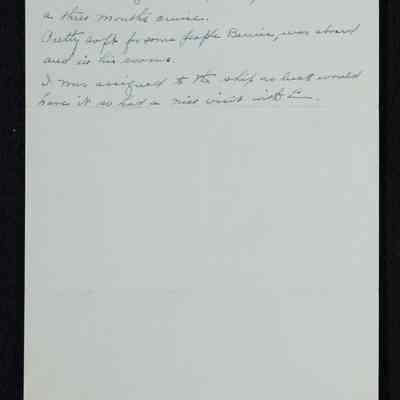 a three months cruise.
Pretty soft for some people Bernie, was aboard
and in his rooms.
I was assigned to the ship as luck would
have it so had a nice visit with